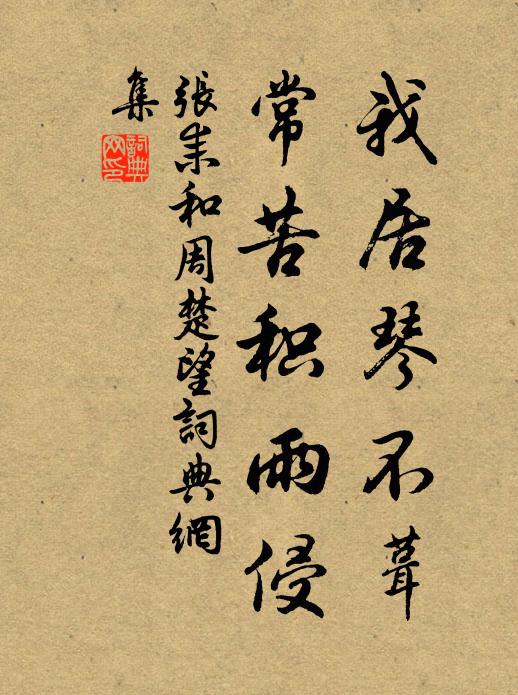 我居琴不葺
常苦积雨侵
張耒和周楚望詞典網
集
詞典
网印